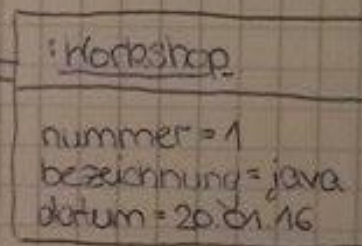 :Workshop
nummer = 1
bezeichnung = java
datum = 20.01.16